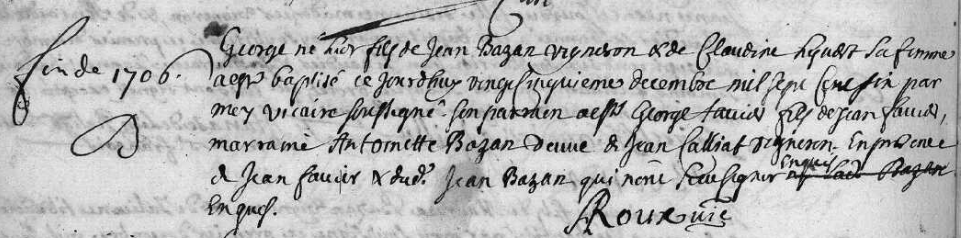 fin de 1706.
George né hier fils de Jean Bazan vigneron & de Claudine sa femme
a esté baptisé ce jourdhuy vingt cinquieme decembre mil sept cent six par
moy vicaire soussigné. son parrain a esté George favier fils de Jean favier,
marraine Antoinette Bazan veuve de Jean Calliat vigneron. En presence
de Jean favier & dud. Jean Bazan qui nont sceu signer Enquis
Enquis.
Roux vic